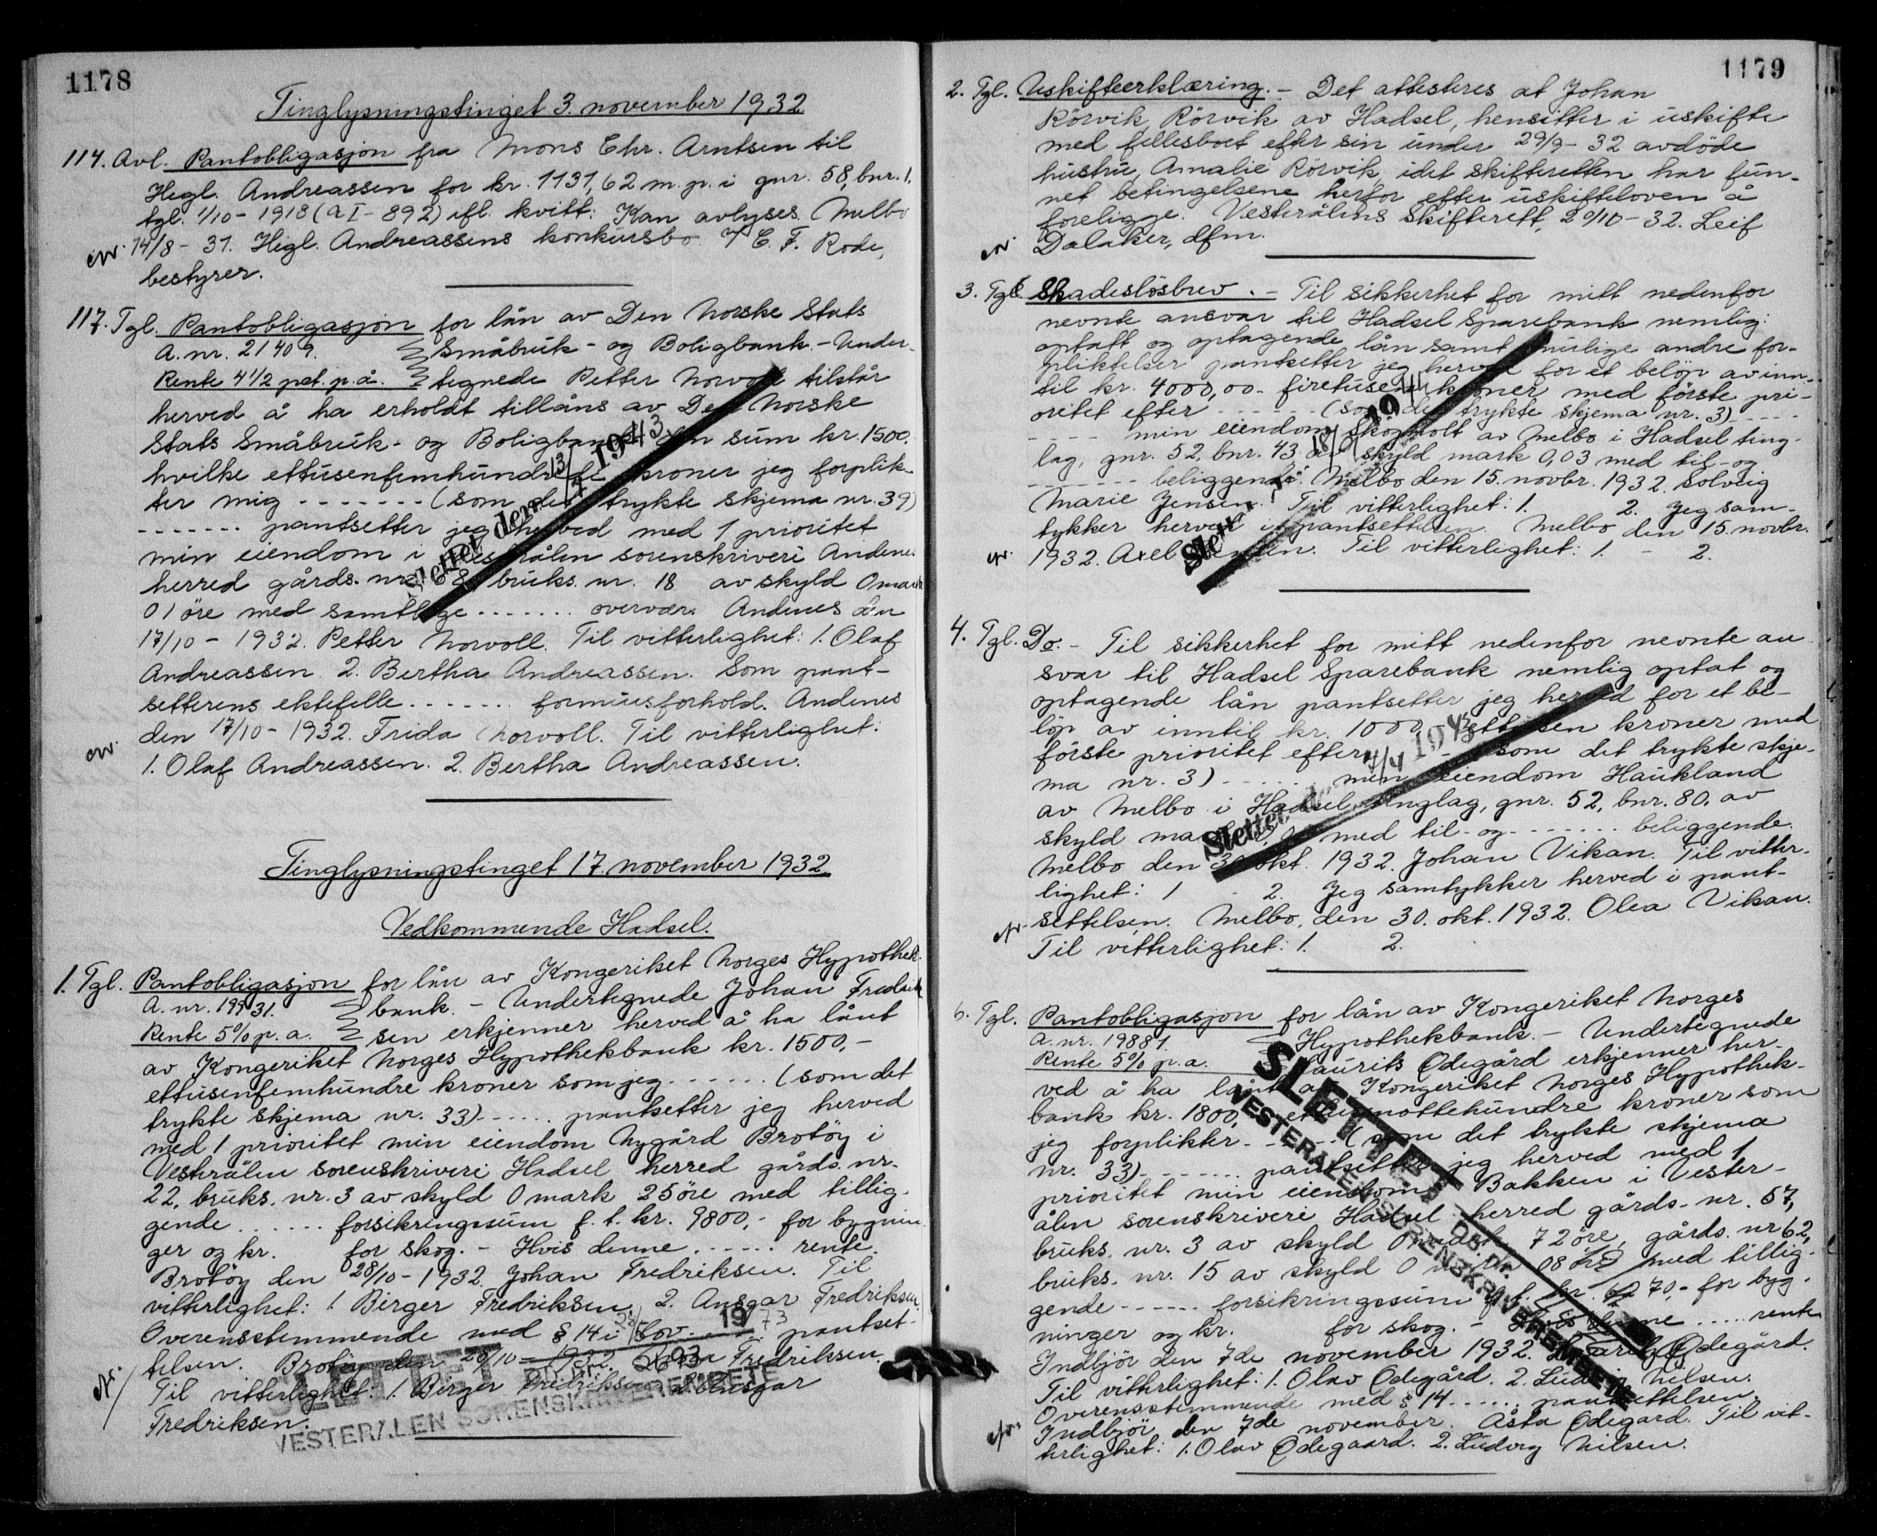 1178
Tinglysningstinget 3. november 1932
114. Avl. Pantobligasjon fra Mons Chr. Arntsen til
Hegl. Andreassen for kr. 1131,62 m. p. i gnr. 58, bnr. 1,
tgl. 1/10 - 1918 (a I - 892) ifl. kvitt: Kan avlyses. Melbo
14/8 - 31. Higl. Andreassens konkursbo. C. F. Rode,
bestyrer.
117. Tgl. Pantobligasjon for lån av Den Norske Stats
A. nr. 21409. Småbruk- og Boligbank. - Under-
Rente 4 1/2 pct. p. å. tegnede Petter Norvoll tilstår
herved å ha erholdt tillåns av Den Norske
Stats Småbruk- og Boligbank den sum kr. 1500.
hvilke ettusenfemhundrede kroner jeg forplik-
ter mig - - - - - - - (som det trykte skjema nr. 39)
- - - - - - - pantsetter jeg herved med 1 prioritet
min eiendom i Vesterålen sorenskriveri Andenes
herred gårds. nr. 8 bruks. nr. 18 av skyld 0 mark
01 öre med samtlige . . . . . . . overvær. Andenes den
17/10 - 1932. Petter Norvoll. Til vitterlighet: 1. Olaf
Andreassen. 2. Bertha Andreassen. Som pant-
setterens ektefelle . . . . . . . formuesforhold. Andenes
den 17/10 - 1932. Frida Norvoll. Til vitterlighet:
1. Olaf Andreassen. 2. Bertha Andreassen.
Slettet den 13/7 1943
Tinglysningstinget 17. november 1932
Vedkommende Hadsel.
1. Tgl. Pantobligasjon for lån av Kongeriket Norges Hypothek-
A. nr. 19931. bank. - Undertegnede Johan Fredrik-
Rente 5% p. a. sen erkjenner herved å ha lånt
av Kongeriket Norges Hypothekbank kr. 1500,-
ettusenfemhundre kroner som jeg . . . . . . (som det
trykte skjema nr. 33) - . . . . . pantsetter jeg herved
med 1 prioritet min eiendom Nygård Brotöy i
Vesterålen sorenskriveri Hadsel herred gårds. nr.
22, bruks. nr. 3 av skyld 0 mark 25 öre med tillig-
gende . . . . . . forsikringssum f. t. kr. 9800,- for bygnin-
ger og kr. for skog. - Hvis denne . . . . . . rente.
Brotöy den 28/10 - 1932. Johan Fredriksen. Til
vitterlighet: 1. Birger Fredriksen. 2. Ansgar Fredriksen.
Overensstemmende med § 14 i lov . . . . . . pantset-
telsen. Brotöy den 28/10 - 1932. Fredriksen.
Til vitterlighet: 1. Birger Fredriksen 2. Ansgar
Fredriksen.
SLETTET 1973
VESTERÅLEN SORENSKRIVEREMBETE
1179
2. Tgl. Uskifteerklæring. - Det attesteres at Johan
Rörvik, Rörvik av Hadsel, hensitter i uskifte
med fellesboet efter sin under 29/9 - 32 avdöde
hustru, Amalie Rörvik, idet skifteretten har fun-
net betingelsene herfor efter uskifteloven å
foreligge. Vesterålens skifterett, 20/10 - 32. Leif
Dalaker, dfm.
3. Tgl. Skadeslösbrev. - Til sikkerhet for mitt nedenfor
nevnte ansvar til Hadsel Sparebank nemlig:
optatt og optagende lån samt mulige andre for-
pliktelser pantsetter jeg herved for et belöp av inn-
til kr. 4000,00 - firetusen kroner med förste pri-
oritet efter - - - - - - (som det trykte skjema nr. 3) - - - -
- - - - min eiendom Skogholt av Melbo i Hadsel ting-
lag, gnr. 52, bnr. 43 av skyld mark 0,03 med til- og
- - - - - - - beliggende. Melbo den 15. novbr. 1932. Solveig
Marie Jensen. Til vitterlighet: 1. 2. Jeg sam-
tykker herved i pantsettelsen. Melbo den 15. novbr.
1932. Axel Jensen. Til vitterlighet: 1. - 2.
4. Tgl. Do. - Til sikkerhet for mitt nedenfor nevnte an-
svar til Hadsel Sparebank nemlig optat og
optagende lån pantsetter jeg herved for et be-
löp av inntil kr. 1000 ettusen kroner med
förste prioritet efter som det trykte skje-
ma nr. 3) . . . . . . min eiendom Haukland
av Melbo i Hadsel tinglag, gnr. 52, bnr. 80, av
skyld mark med til- og . . . . . . . beliggende.
Melbo den 30 okt. 1932. Johan Vikan. Til vitter-
lighet: 1 - 2. Jeg samtykker herved i pant-
settelsen. Melbo, den 30. okt. 1932. Olea Vikan.
Til vitterlighet: 1. 2.
Slettet 7/4 1943
6. Tgl. Pantobligasjon for lån av Kongeriket Norges
A. nr. 19881. Hypothekbank. - Undertegnede
Rente 5% p. a. Laurits Ödegård erkjenner her-
ved å ha lånt av Kongeriket Norges Hypothek-
bank kr. 1800, ettusenottehundre kroner som
jeg forplikter - . . . . . (som det trykte skjema
nr. 33) - . . . . . . pantsetter jeg herved med 1
prioritet min eiendom Bakken i Vester-
ålen sorenskriveri Hadsel herred gårds. nr. 57,
bruks. nr. 3 av skyld 0 mark 72 öre, gårds. nr 62,
bruks. nr. 15 av skyld 0 mark 08 öre med tillig-
gende - - - - - - forsikringssum f. t. kr. 70,- for byg-
ninger og kr. for skog. - Hvis denne . . . . . rente
Indbjör den 7de november 1932. Laurits Ödegård.
Til vitterlighet: 1. Olav Ödegård. 2. Ludvig Nilsen.
Overensstemmende med § 14 . . . . . . pantsettelsen.
Indbjör, den 7de november. Åsta Ödegard. Til vit-
terlighet: 1. Olav Ödegaard. 2. Ludvig Nilsen.
SLETTET
DB.nr.
VESTERÅLEN SORENSKRIVEREMBETE